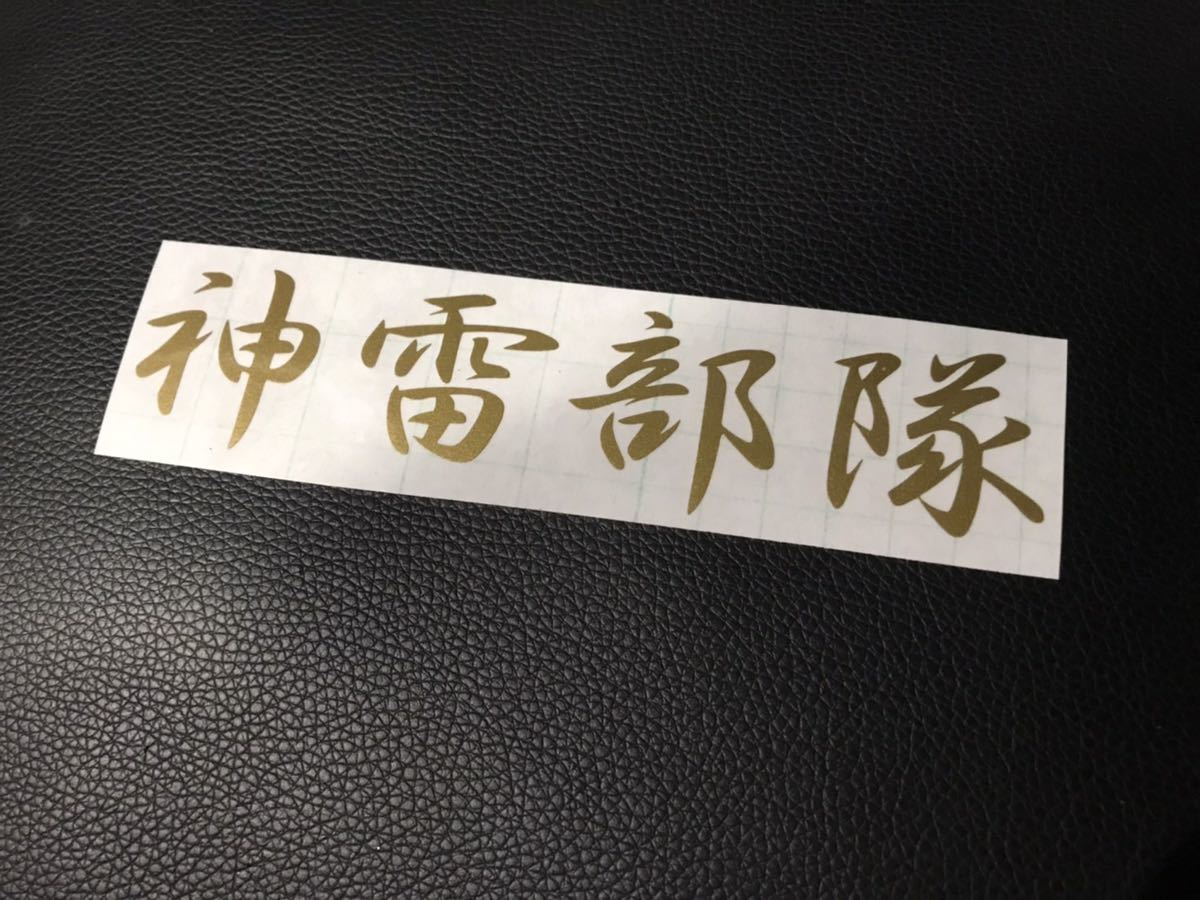 神雷部隊